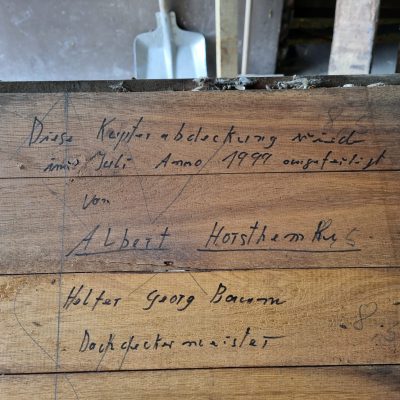 Diese Kupferabdeckung wurde
im Juli Anno 1999 angefertigt
von
Albert Horsthemke
Helfer Georg Baum
Dachdeckermeister